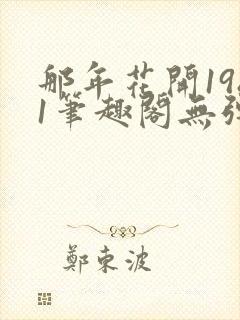 那年花開19
1筆趣閣無
鄭東波